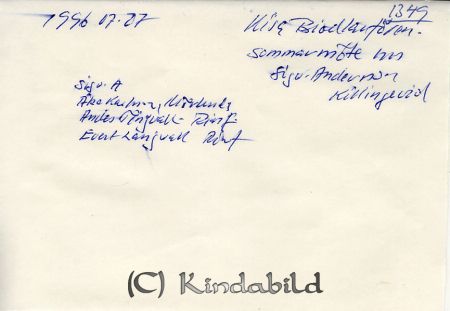 1996 07-27
1349
Kisa Biodlarfören.
sommarmöte hos
Sigv. Anderson
Killingevid
Sigv. A
Åke Karlsson,
Anders Längvall - Rimf
Evert Längvall Rimf
(C) Kindabild